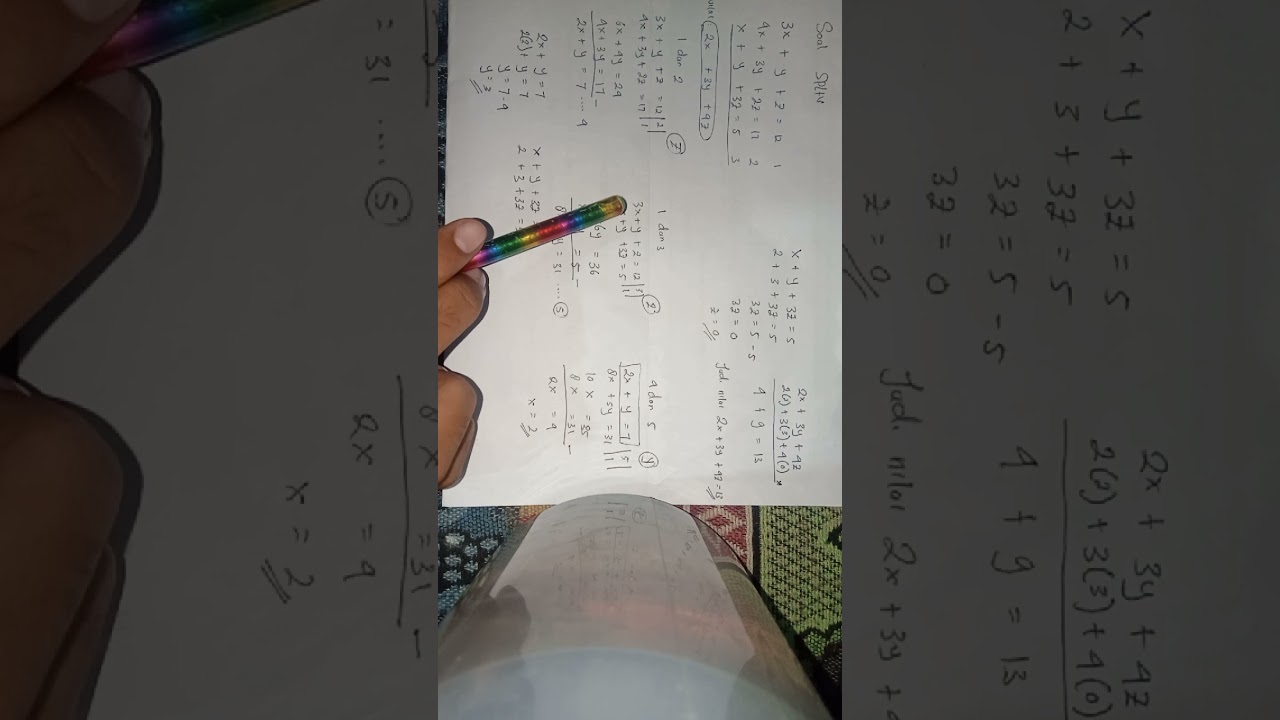 Soal SPLTV
3x + y + z = 12 1
4x + 3y + 2z = 17 2
x + y + 3z = 5 3
nilai 2x + 3y + 4z
1 dan 2
3x + y + z = 12 |2|
4x + 3y + 2z = 17 |1|
6x + 2y = 24
4x + 3y = 17 -
2x + y = 7 .... 4
2x + y = 7
2(2) + y = 7
y = 7 - 4
y = 3
1 dan 3
3x + y + z = 12 |3|
+ y + 3z = 5 |1|
= 36
= 5 -
= 31 .... 5
x + y + 3z
2 + 3 + 3z =
4 dan 5
2x + y = 7 |5|
8x + 5y = 31 |1|
10x = 35
8x = 31 -
2x = 4
x = 2
x + y + 3z = 5
2 + 3 + 3z = 5
3z = 5 - 5
3z = 0
z = 0
2x + 3y + 4z
2(2) + 3(3) + 4(0)
4 + 9 = 13
Jadi nilai 2x + 3y + 4z = 13
x + y + 3z = 5
2 + 3 + 3z = 5
3z = 5 - 5
3z = 0
z = 0
2x + 3y + 4z
2(2) + 3(3) + 4(0)
4 + 9 = 13
Jadi nilai 2x + 3y +
= 31 .... 5
= 31 -
2x = 4
x = 2